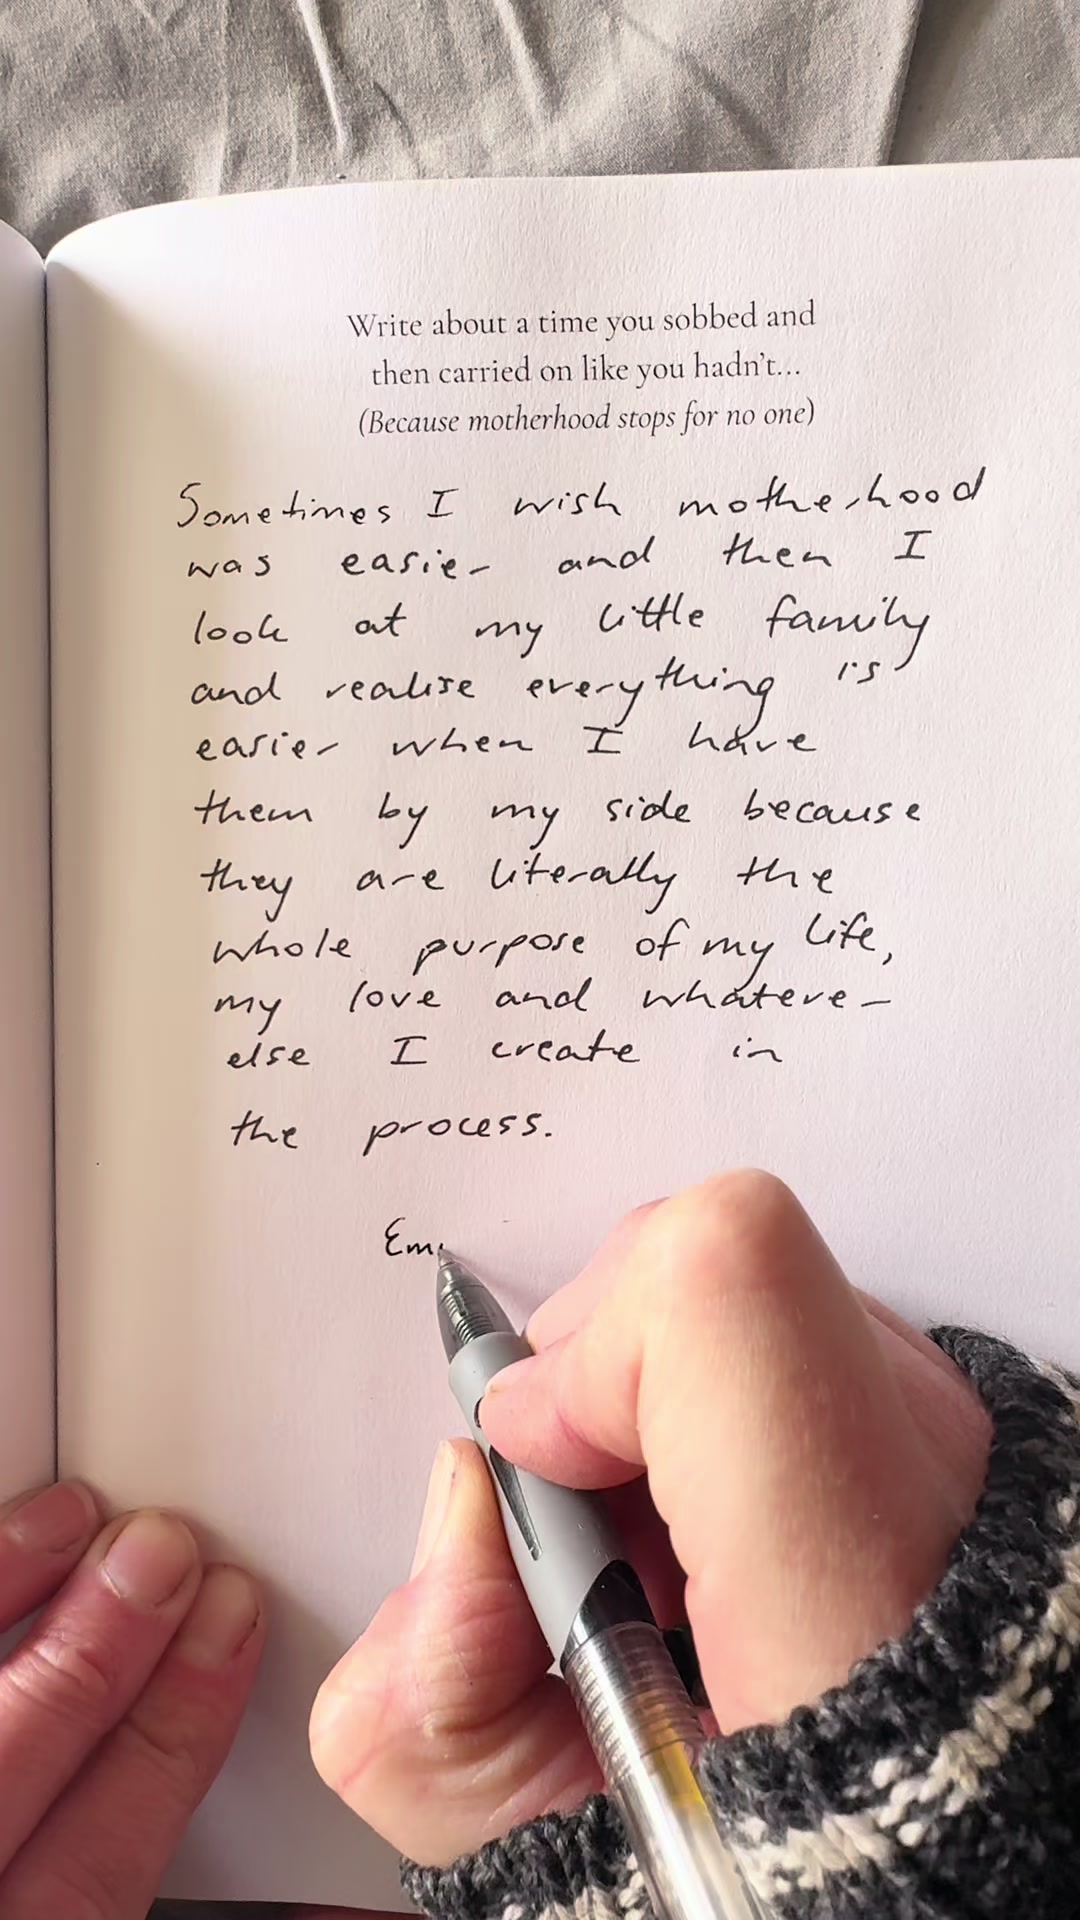 Write about a time you sobbed and
then carried on like you hadn't...
(Because motherhood stops for no one)
Sometimes I wish motherhood
was easier and then I
look at my little family
and realise everything is
easier when I have
them by my side because
they are literally the
whole purpose of my life,
my love and whatever
else I create in
the process.
Em